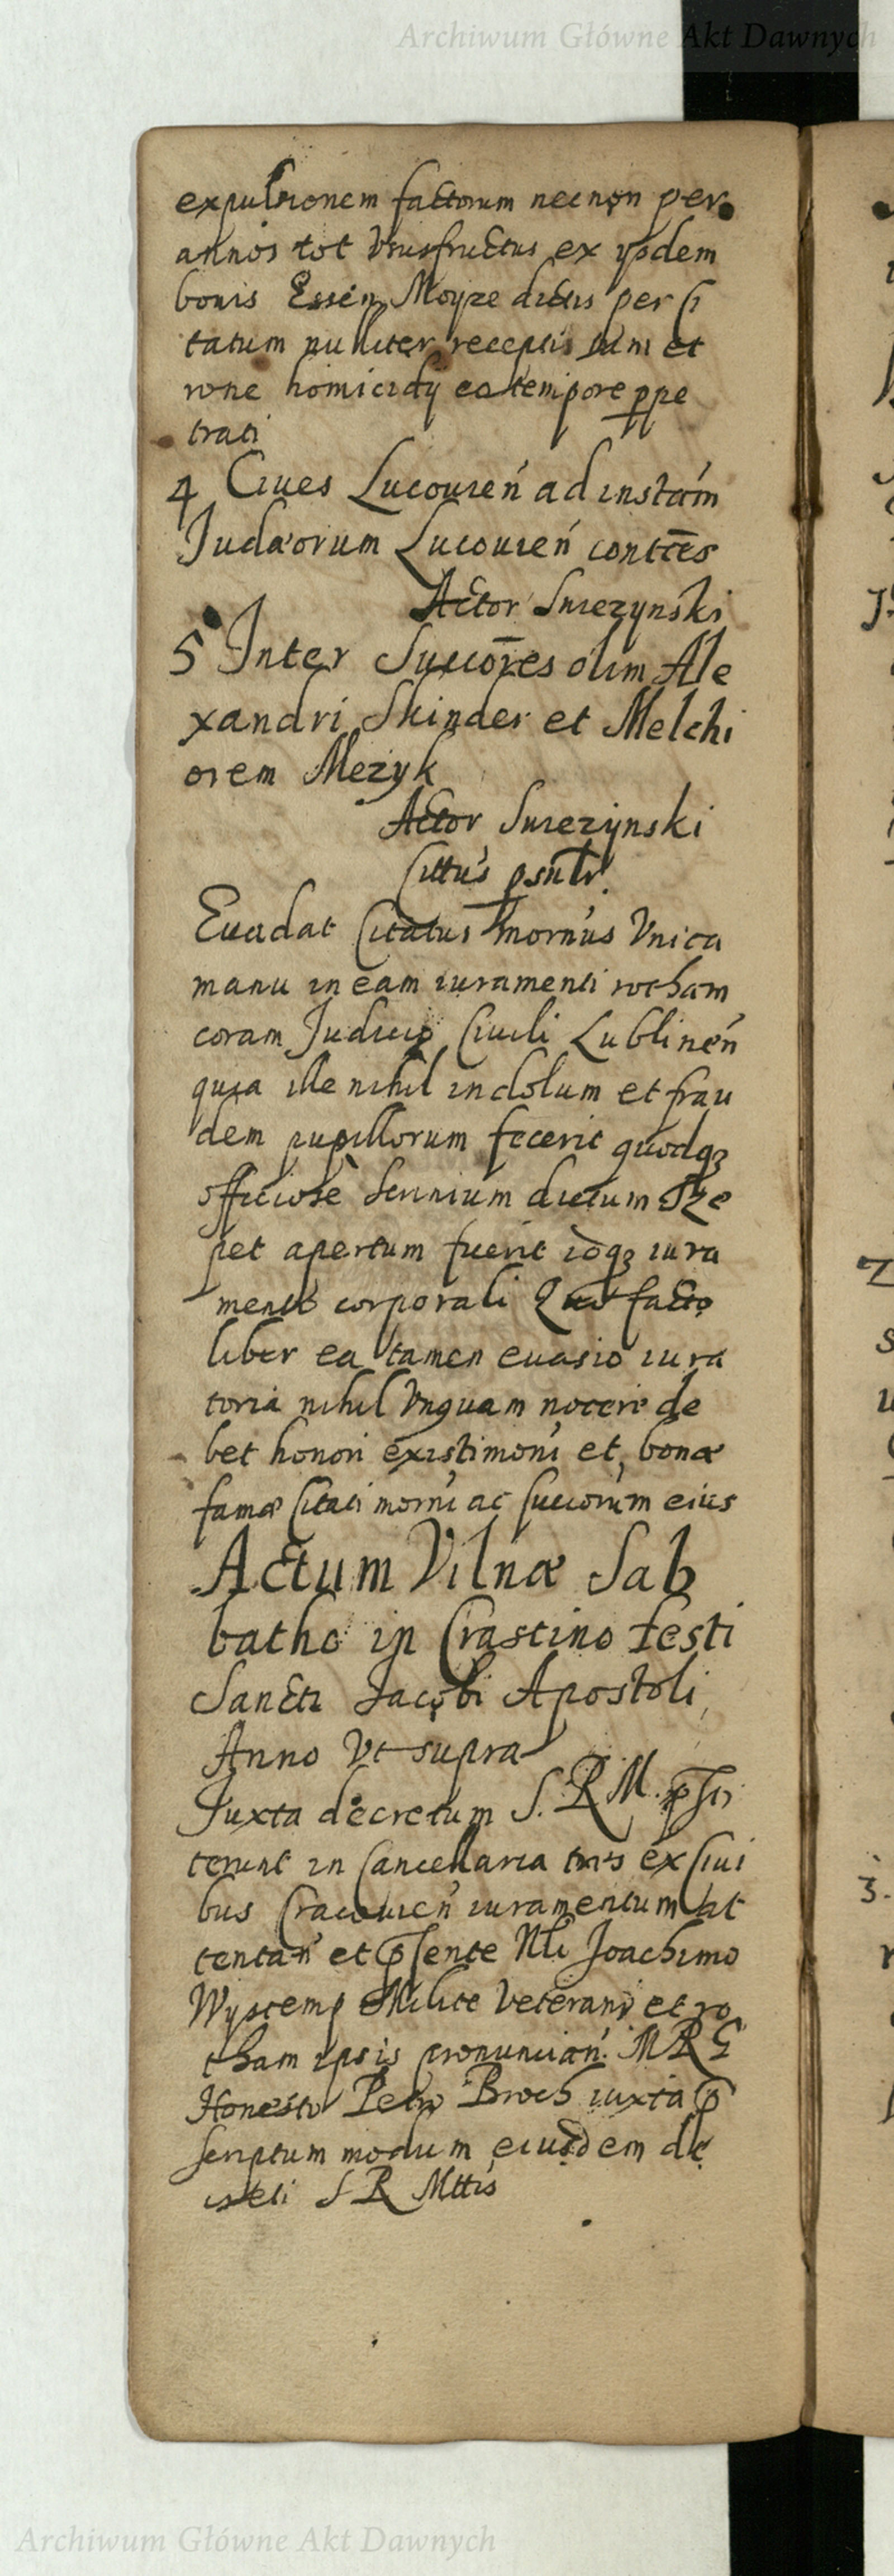 Archiwum Główne Akt Dawnych
expulsionem factorum necnon per
annos tot Vsusfructus ex ysdem
bonis Essen Moyze dictis per Ci
tatum nulliter receptis tum et
rone homicidij eo tempore ppe
trati
4 Ciues Lucouień ad instam
Judæorum Lucouień contēs
Actor Swiezynski
5 Inter Succōres olim Ale
xandri Skinder et Melchi
orem Mezyk
Actor Swiezynski
Cittus psntr
Euadat Citatus mornus Vnica
manu in eam iuramenti rotham
coram Judicio Ciuili Lublineń
quia ille nihil in dolum et frau
dem pupillorum fecerit quodq3
officiose scrinium dictum Sze
pet apertum fuerit idq3 iura
mento corporali Quo facto
liber ea tamen euasio iura
toria nihil Vnquam nocere de
bet honori existimoni et bonæ
famæ Citati morni ac succorum eius
Actum Vilnæ Sab
batho in Crastino festi
Sancti Jacobi Apostoli
Anno Vt supra
Juxta decretum S. R M. psti
terunt in Cancellaria tres ex Ciui
bus Cracouień iuramentum at
tentań et psente Nli Joachimo
Wystemp Milite Veterano et ro
tham ipsis pronunciań. M R G
Honesto Petro Broch iuxta p
scriptum modum eiusdem de
creti S R Mttis
Archiwum Główne Akt Dawnych